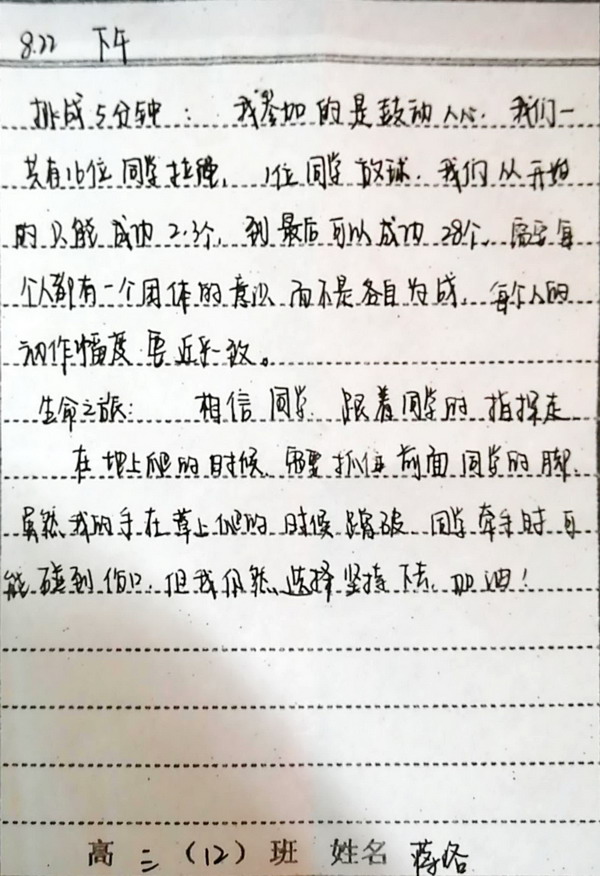 8.22 下午
挑战5分钟： 我参加的是鼓动人心。我们一
共有16位同学拉绳，1位同学放球。我们从开始
的只能成功2.3个，到最后可以成功28个，需要每
个人都有一个团体的意识 而不是各自为战，每个人的
动作幅度要近乎一致。
生命之旅： 相信同学 跟着同学的指挥走
在地上爬的时候 需要抓住前面同学的脚，
虽然我的手在草上爬的时候 破 同学牵手时可
能碰到伤口，但我仍然选择坚持下去，加油！
高二（12）班 姓名 蒋